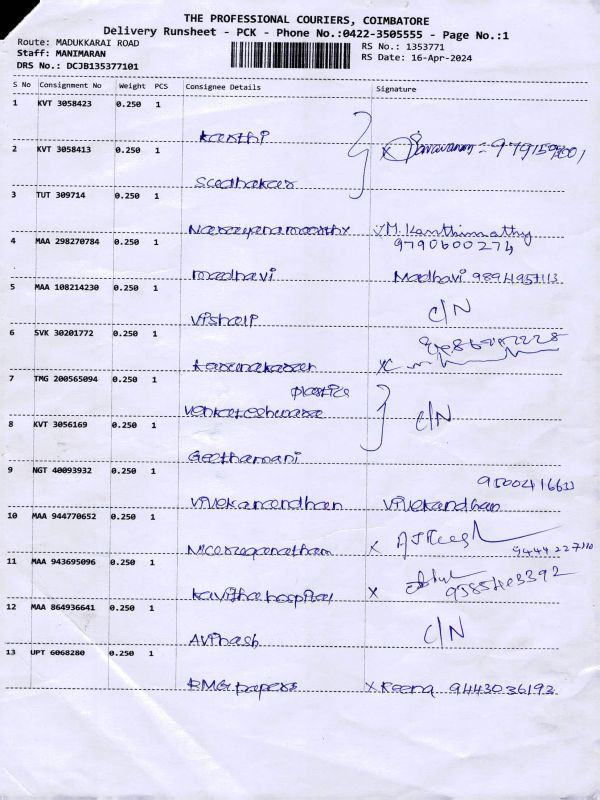 THE PROFESSIONAL COURIERS, COIMBATORE
Delivery Runsheet - PCK - Phone No.:0422-3505555 - Page No.:1
Route: MADUKKARAI ROAD
RS No.: 1353771
Staff: MANIMARAN
RS Date: 16-Apr-2024
DRS No.: DCJB135377101
S No Consignment No Weight PCS Consignee Details Signature
1 KVT 3058423 0.250 1
Karthi
2 KVT 3058413 0.250 1
Saravanan
Scedhakar
3 TUT 309714 0.250 1
Narayanamoorthy M. Kanthimathy
9790600274
4 MAA 298270784 0.250 1
madhavi Madhavi 9894957113
5 MAA 108214230 0.250 1
C/N
Vishali
6 SVK 30201772 0.250 1
Karunakaran x
7 TMG 200565094 0.250 1
plastics
Venkateshwara C/N
8 KVT 3056169 0.250 1
Geethamani
9 NGT 40093932 0.250 1
Vivekanandhan Vivekandhan
10 MAA 944770652 0.250 1
x
9444227110
11 MAA 943695096 0.250 1
Kavitha hospital x
12 MAA 864936641 0.250 1
C/N
Avinash
13 UPT 6068280 0.250 1
RMG papers x Reena 9443036192